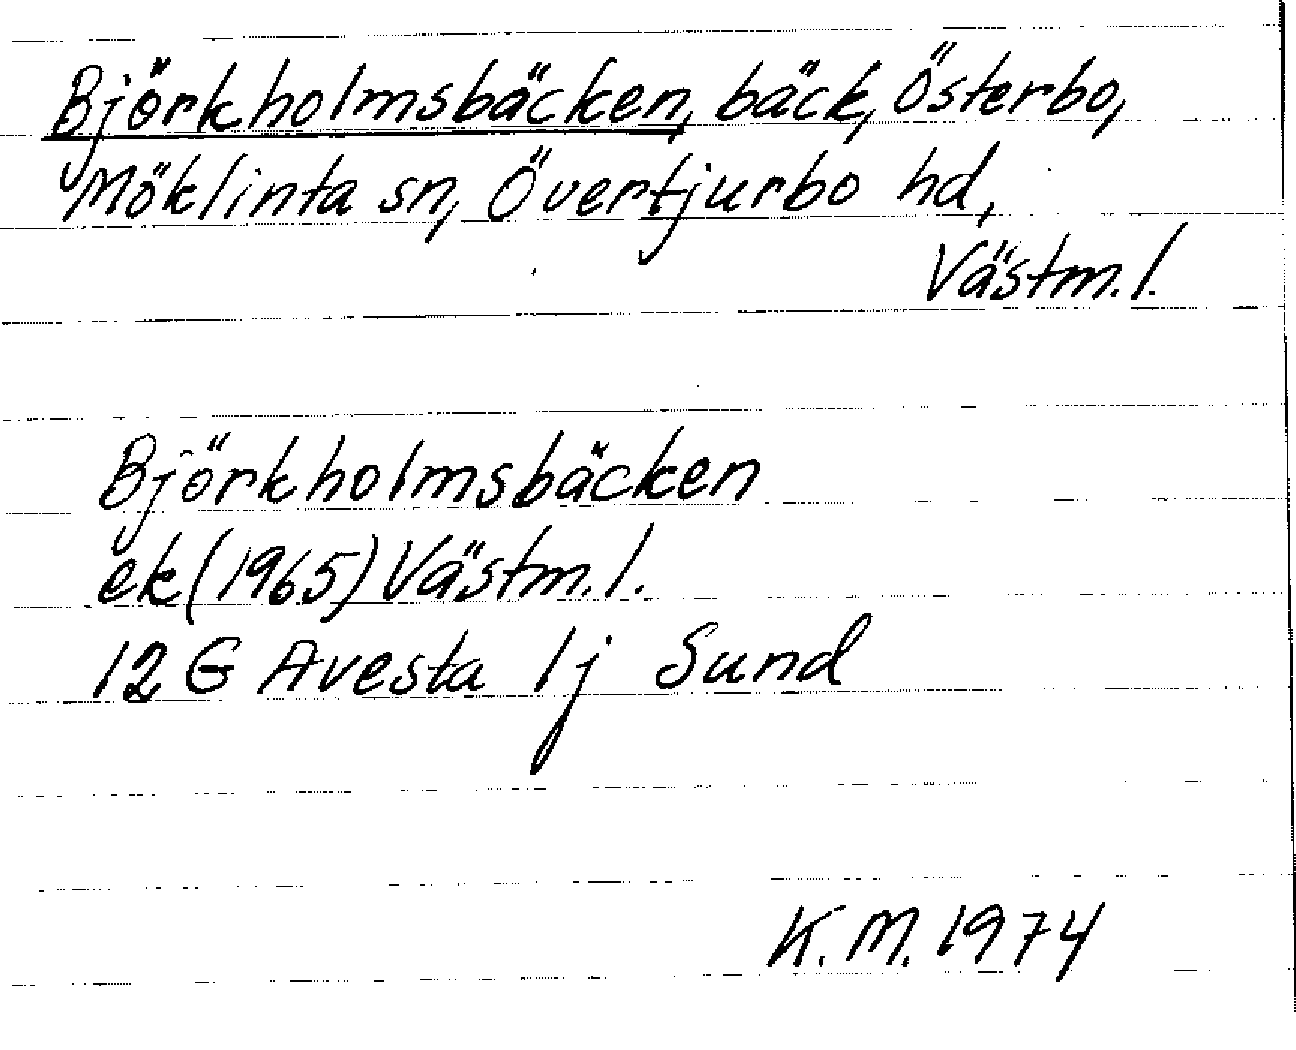 Björkholmsbäcken, bäck, Österbo,
Möklinta sn, Övertjurbo hd,
Västm.l.
Björkholmsbäcken
ek (1965) Västm.l.
12 G Avesta 1j Sund
K.M. 1974